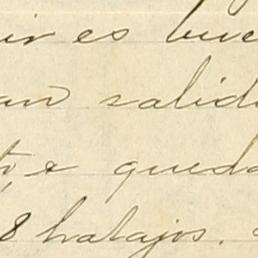 ir es bue
an salid
queda
8 hatajos.